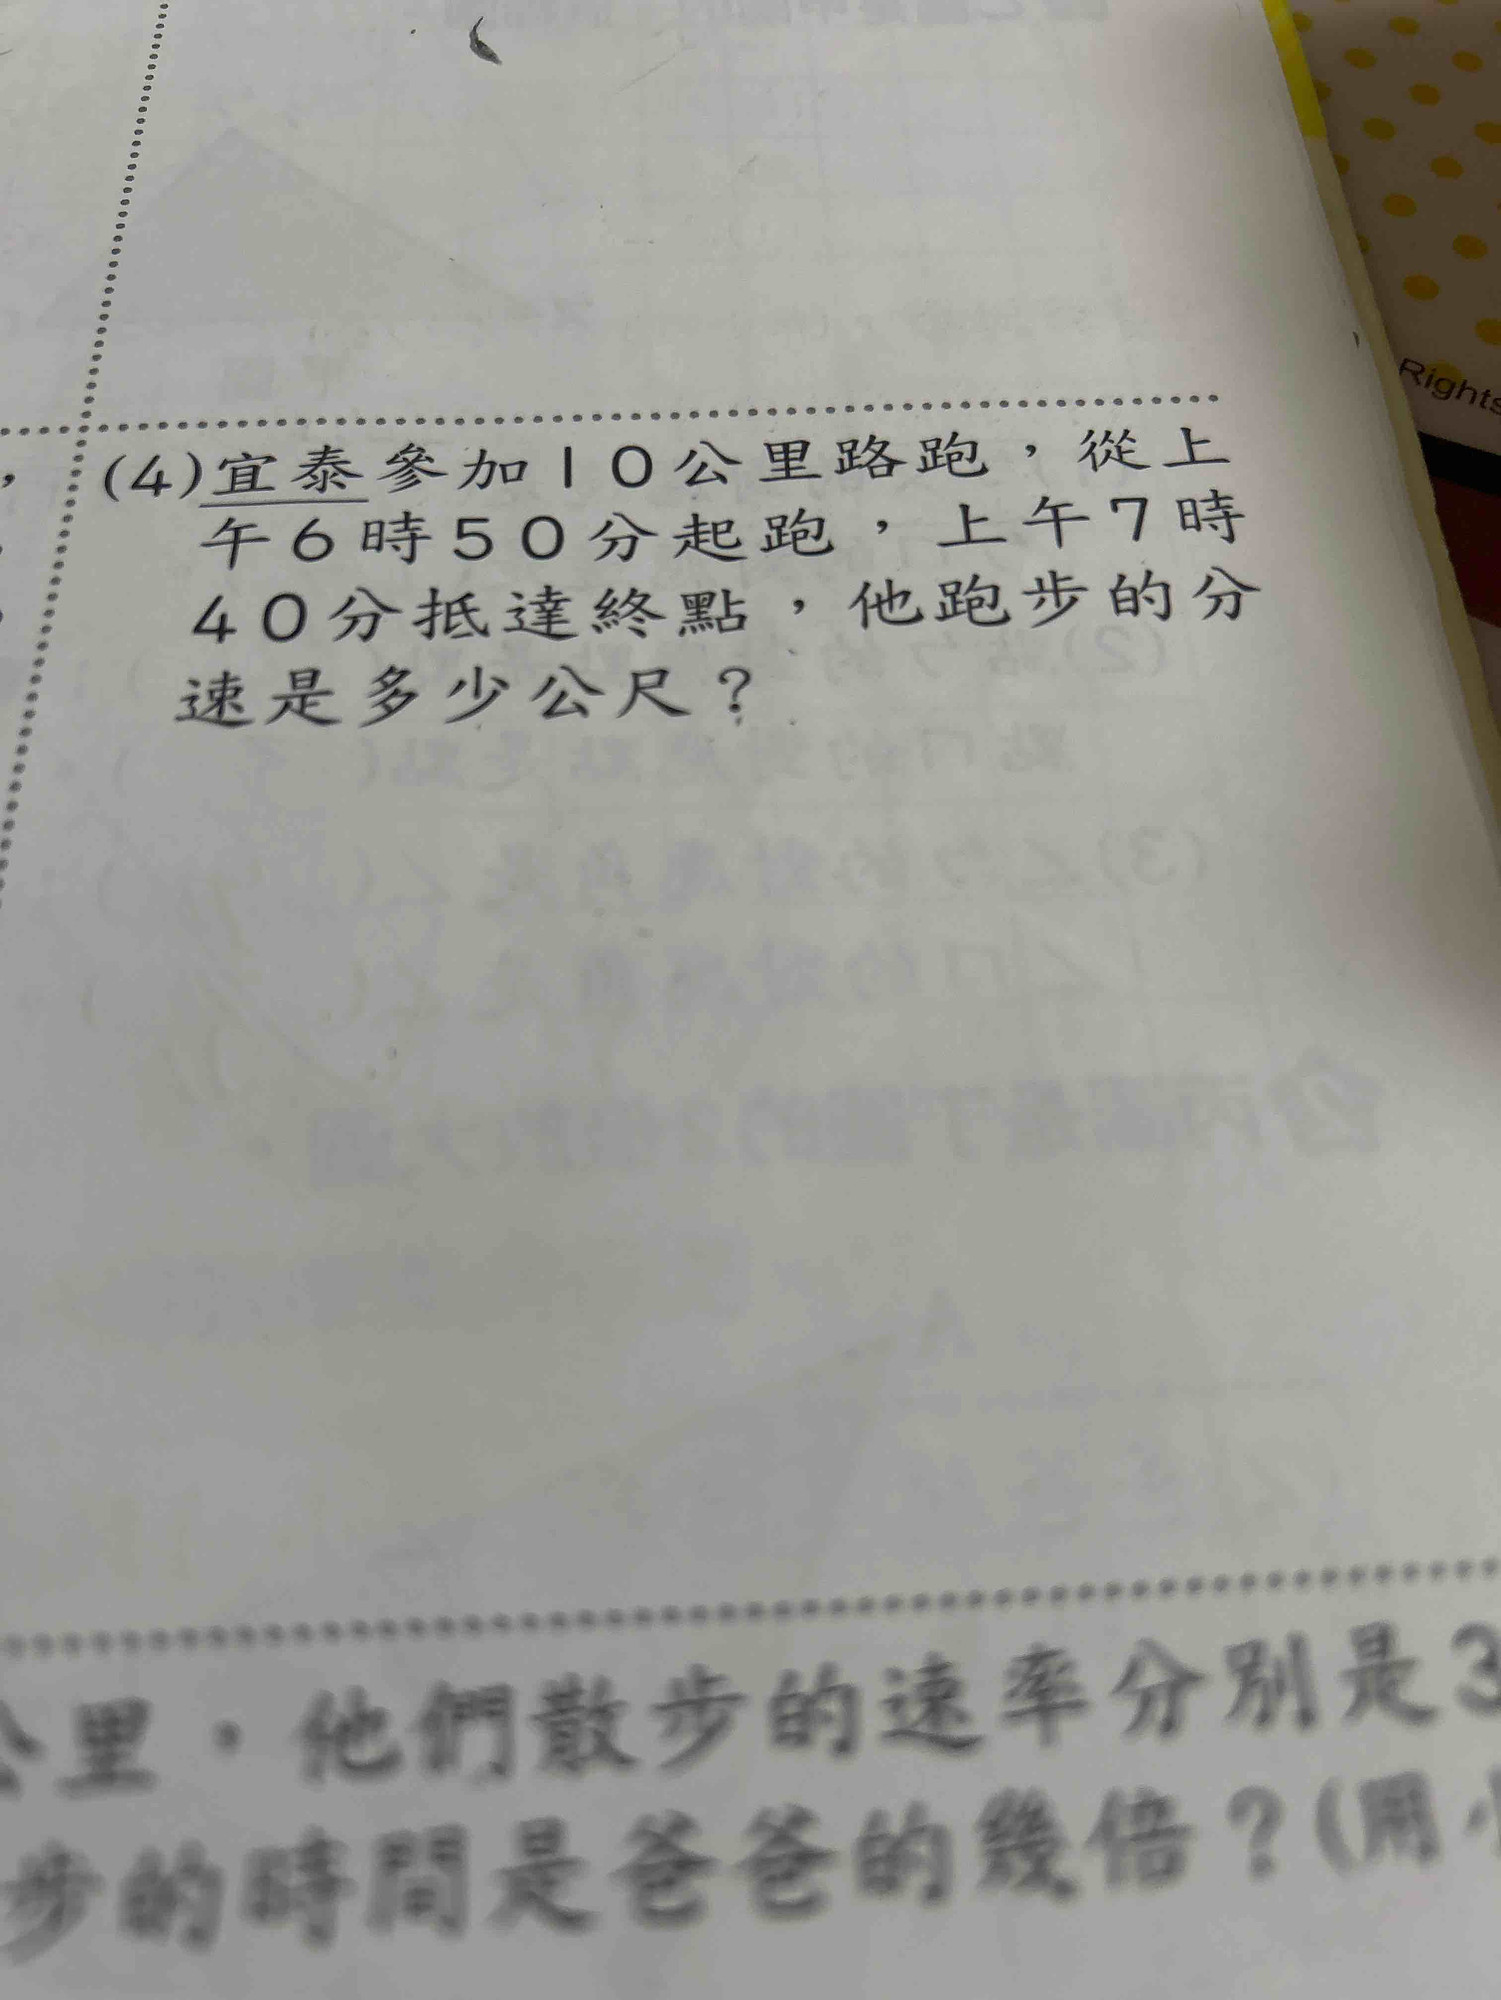 Rights
(4)宜泰參加10公里路跑，從上
午6時50分起跑，上午7時
40分抵達終點，他跑步的分
速是多少公尺？
公里，他們散步的速率分別是3
步的時間是爸爸的幾倍？(用小